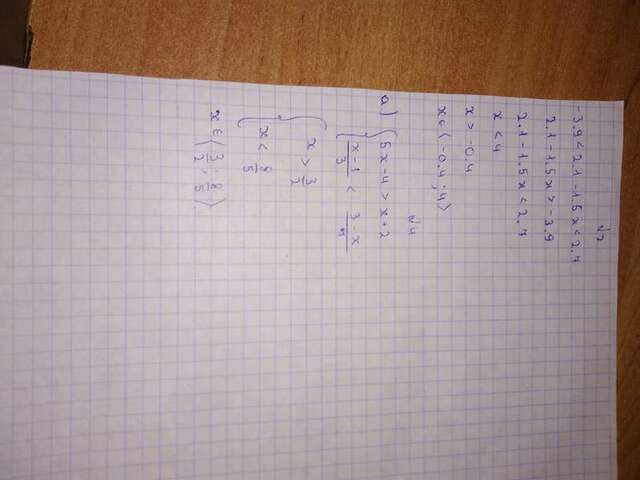 N2
-3.9<2.1-1.5x<2.7
2.1-1.5x>-3.9
2.1-1.5x<2.7
x<4
x>-0.4
x∈(-0.4;4)
N4
a) { 5x-4>x+2
x-1/3 < 3-x/7
{ x > 3/2
x < 8/5
x∈(3/2; 8/5).